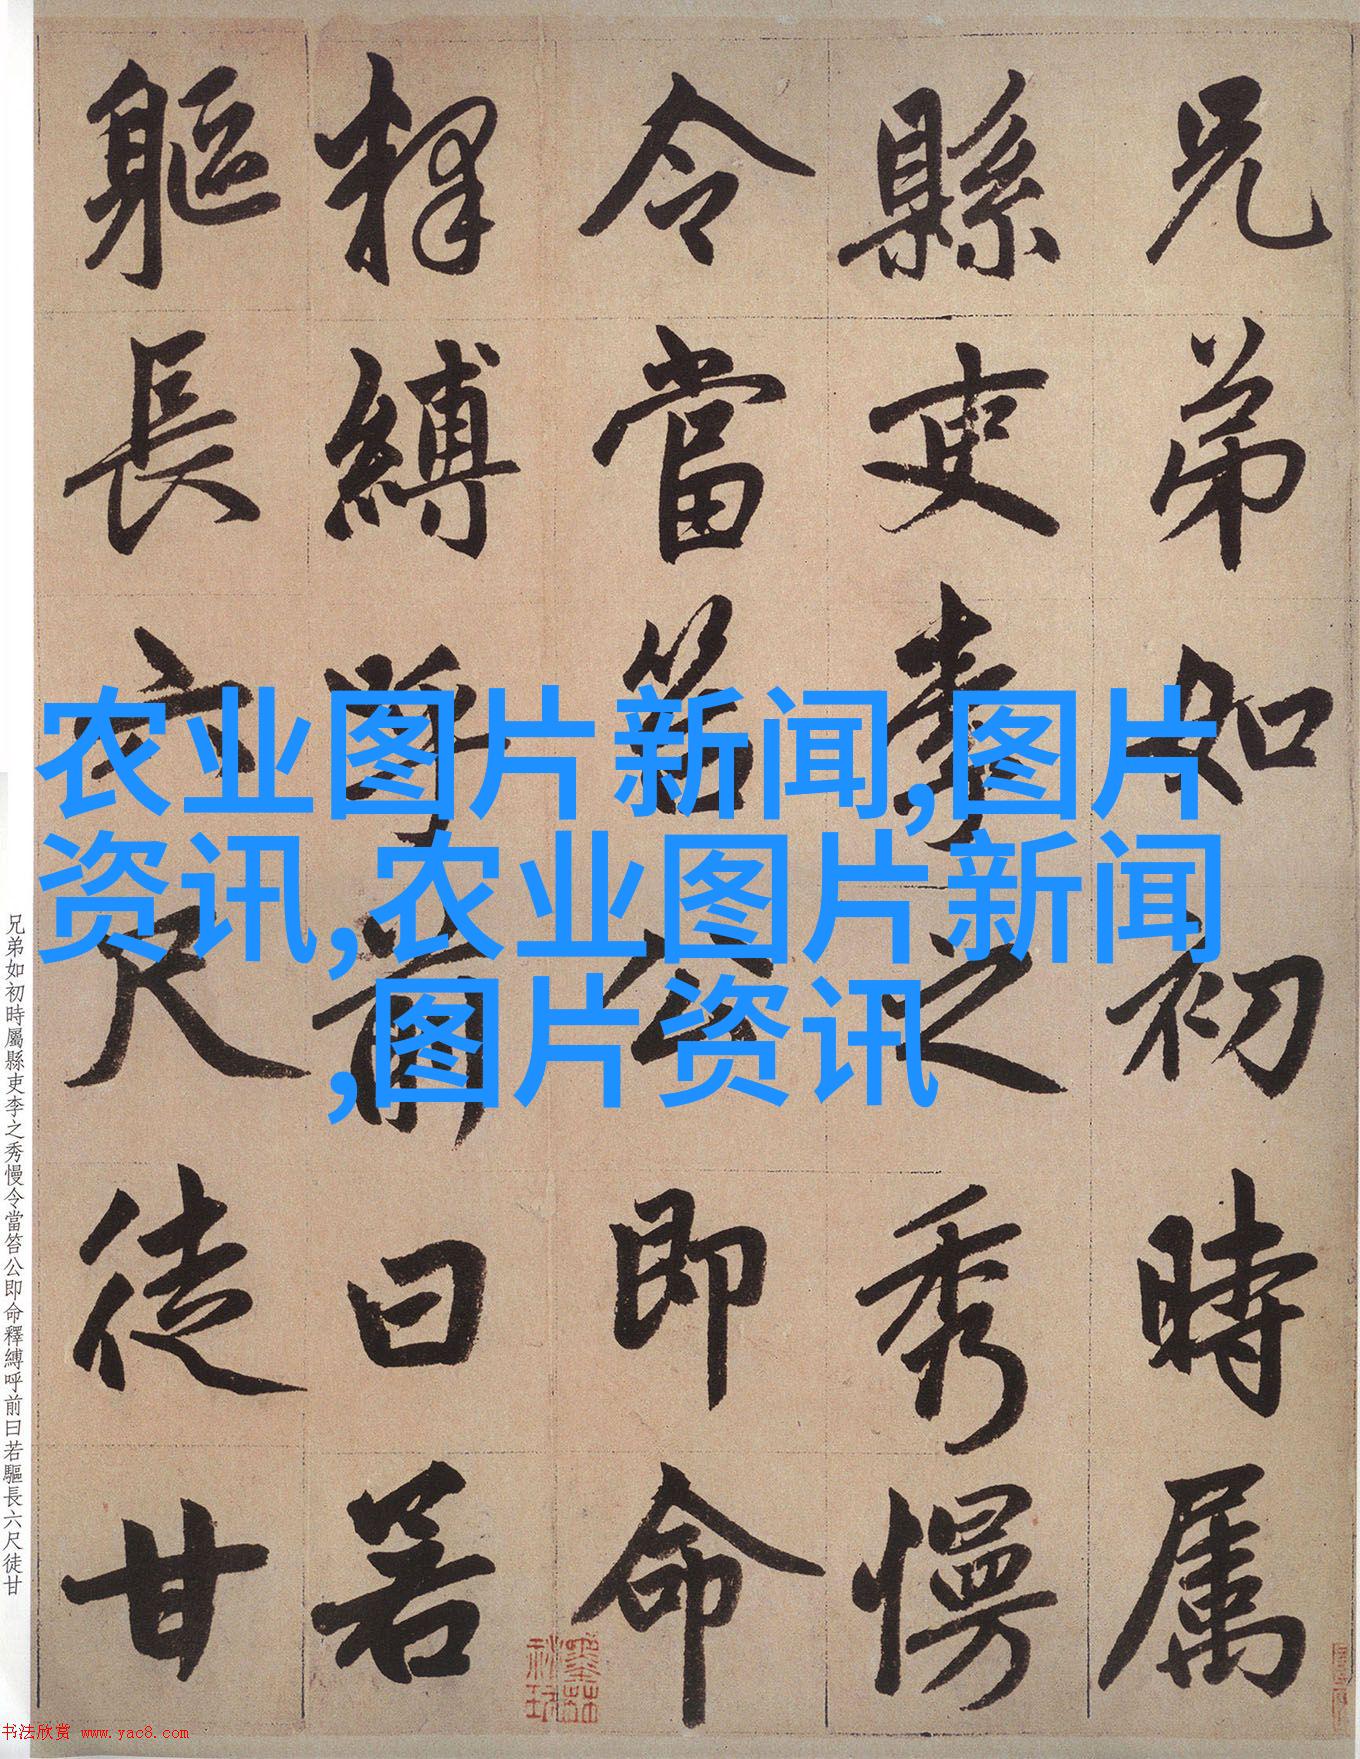 兄弟如初時属
縣吏李之秀慢
令當笞公即命
釋縛呼前曰若
軀長六尺徒甘
农业图片新闻,图片
资讯,农业图片新闻
,图片资讯
兄弟如初時屬縣吏李之秀慢令當笞公即命釋縛呼前曰若驅長六尺徒甘
书法欣赏 www.yac8.com